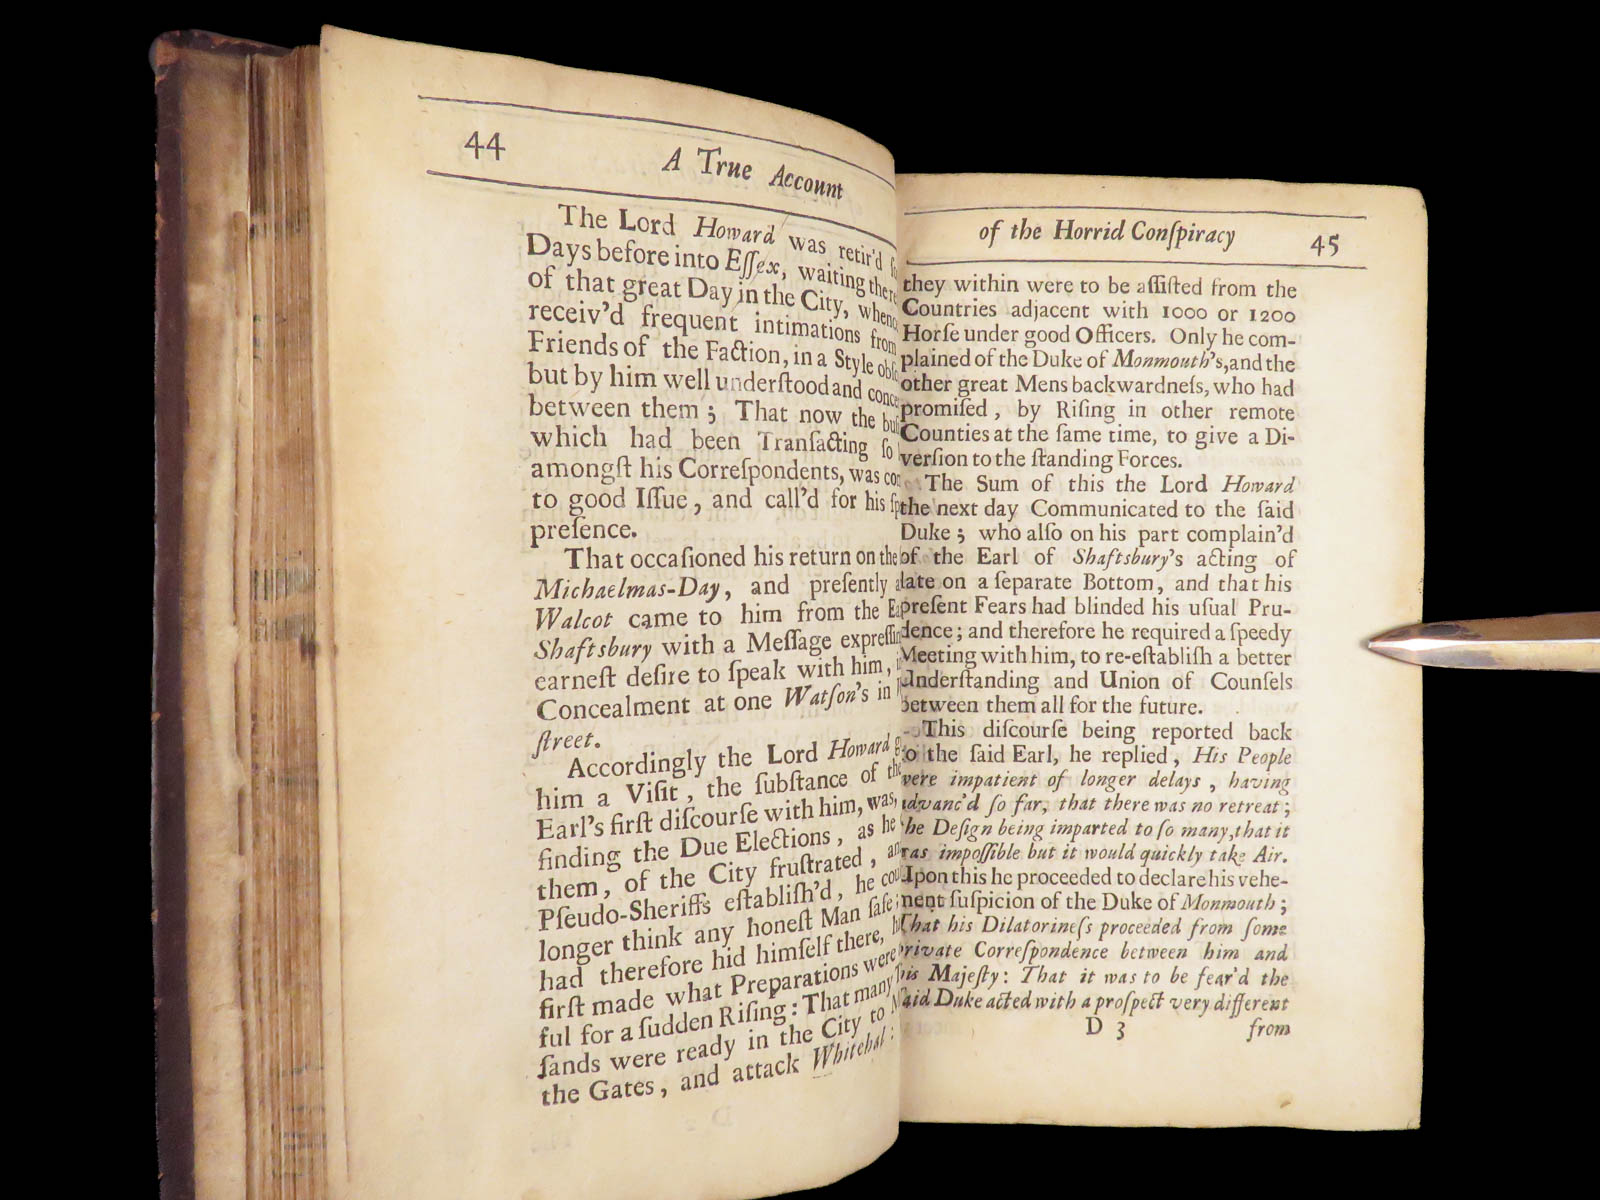 44
A True Account
The Lord Howard was retir'd
Days before into Eſſex, waiting there
of that great Day in the City, whence
receiv'd frequent intimations from
Friends of the Faction, in a Style
but by him well underſtood and
between them; That now the
which had been Tranſacting ſo
amongſt his Correſpondents, was
to good Iſſue, and call'd for his
preſence.
That occaſioned his return on the
Michaelmas-Day, and preſently
Walcot came to him from the
Shaftsbury with a Meſſage
earneſt deſire to ſpeak with him,
Concealment at one Watſon's in
ſtreet.
Accordingly the Lord Howard
him a Viſit, the ſubſtance of the
Earl's firſt diſcourſe with him, was,
finding the Due Elections, as he
them, of the City fruſtrated,
Pſeudo-Sheriffs eſtabliſh'd, he
longer think any honeſt Man ſafe;
had therefore hid himſelf there,
firſt made what Preparations were
ful for a ſudden Riſing: That many
ſands were ready in the City to
the Gates, and attack Whitehal:
of the Horrid Conſpiracy
45
they within were to be aſſiſted from the
Countries adjacent with 1000 or 1200
Horſe under good Officers. Only he com-
plained of the Duke of Monmouth's, and the
other great Mens backwardneſs, who had
promiſed, by Riſing in other remote
Counties at the ſame time, to give a Di-
verſion to the ſtanding Forces.
The Sum of this the Lord Howard
the next day Communicated to the ſaid
Duke; who alſo on his part complain'd
of the Earl of Shaftsbury's acting of
late on a ſeparate Bottom, and that his
preſent Fears had blinded his uſual Pru-
dence; and therefore he required a ſpeedy
Meeting with him, to re-eſtabliſh a better
Underſtanding and Union of Counſels
between them all for the future.
This diſcourſe being reported back
to the ſaid Earl, he replied, His People
were impatient of longer delays, having
advanc'd ſo far, that there was no retreat;
the Deſign being imparted to ſo many, that it
was impoſſible but it would quickly take Air.
Upon this he proceeded to declare his vehe-
ment ſuſpicion of the Duke of Monmouth;
That his Dilatorineſs proceeded from ſome
private Correſpondence between him and
his Majeſty: That it was to be fear'd the
ſaid Duke acted with a proſpect very different
D 3
from